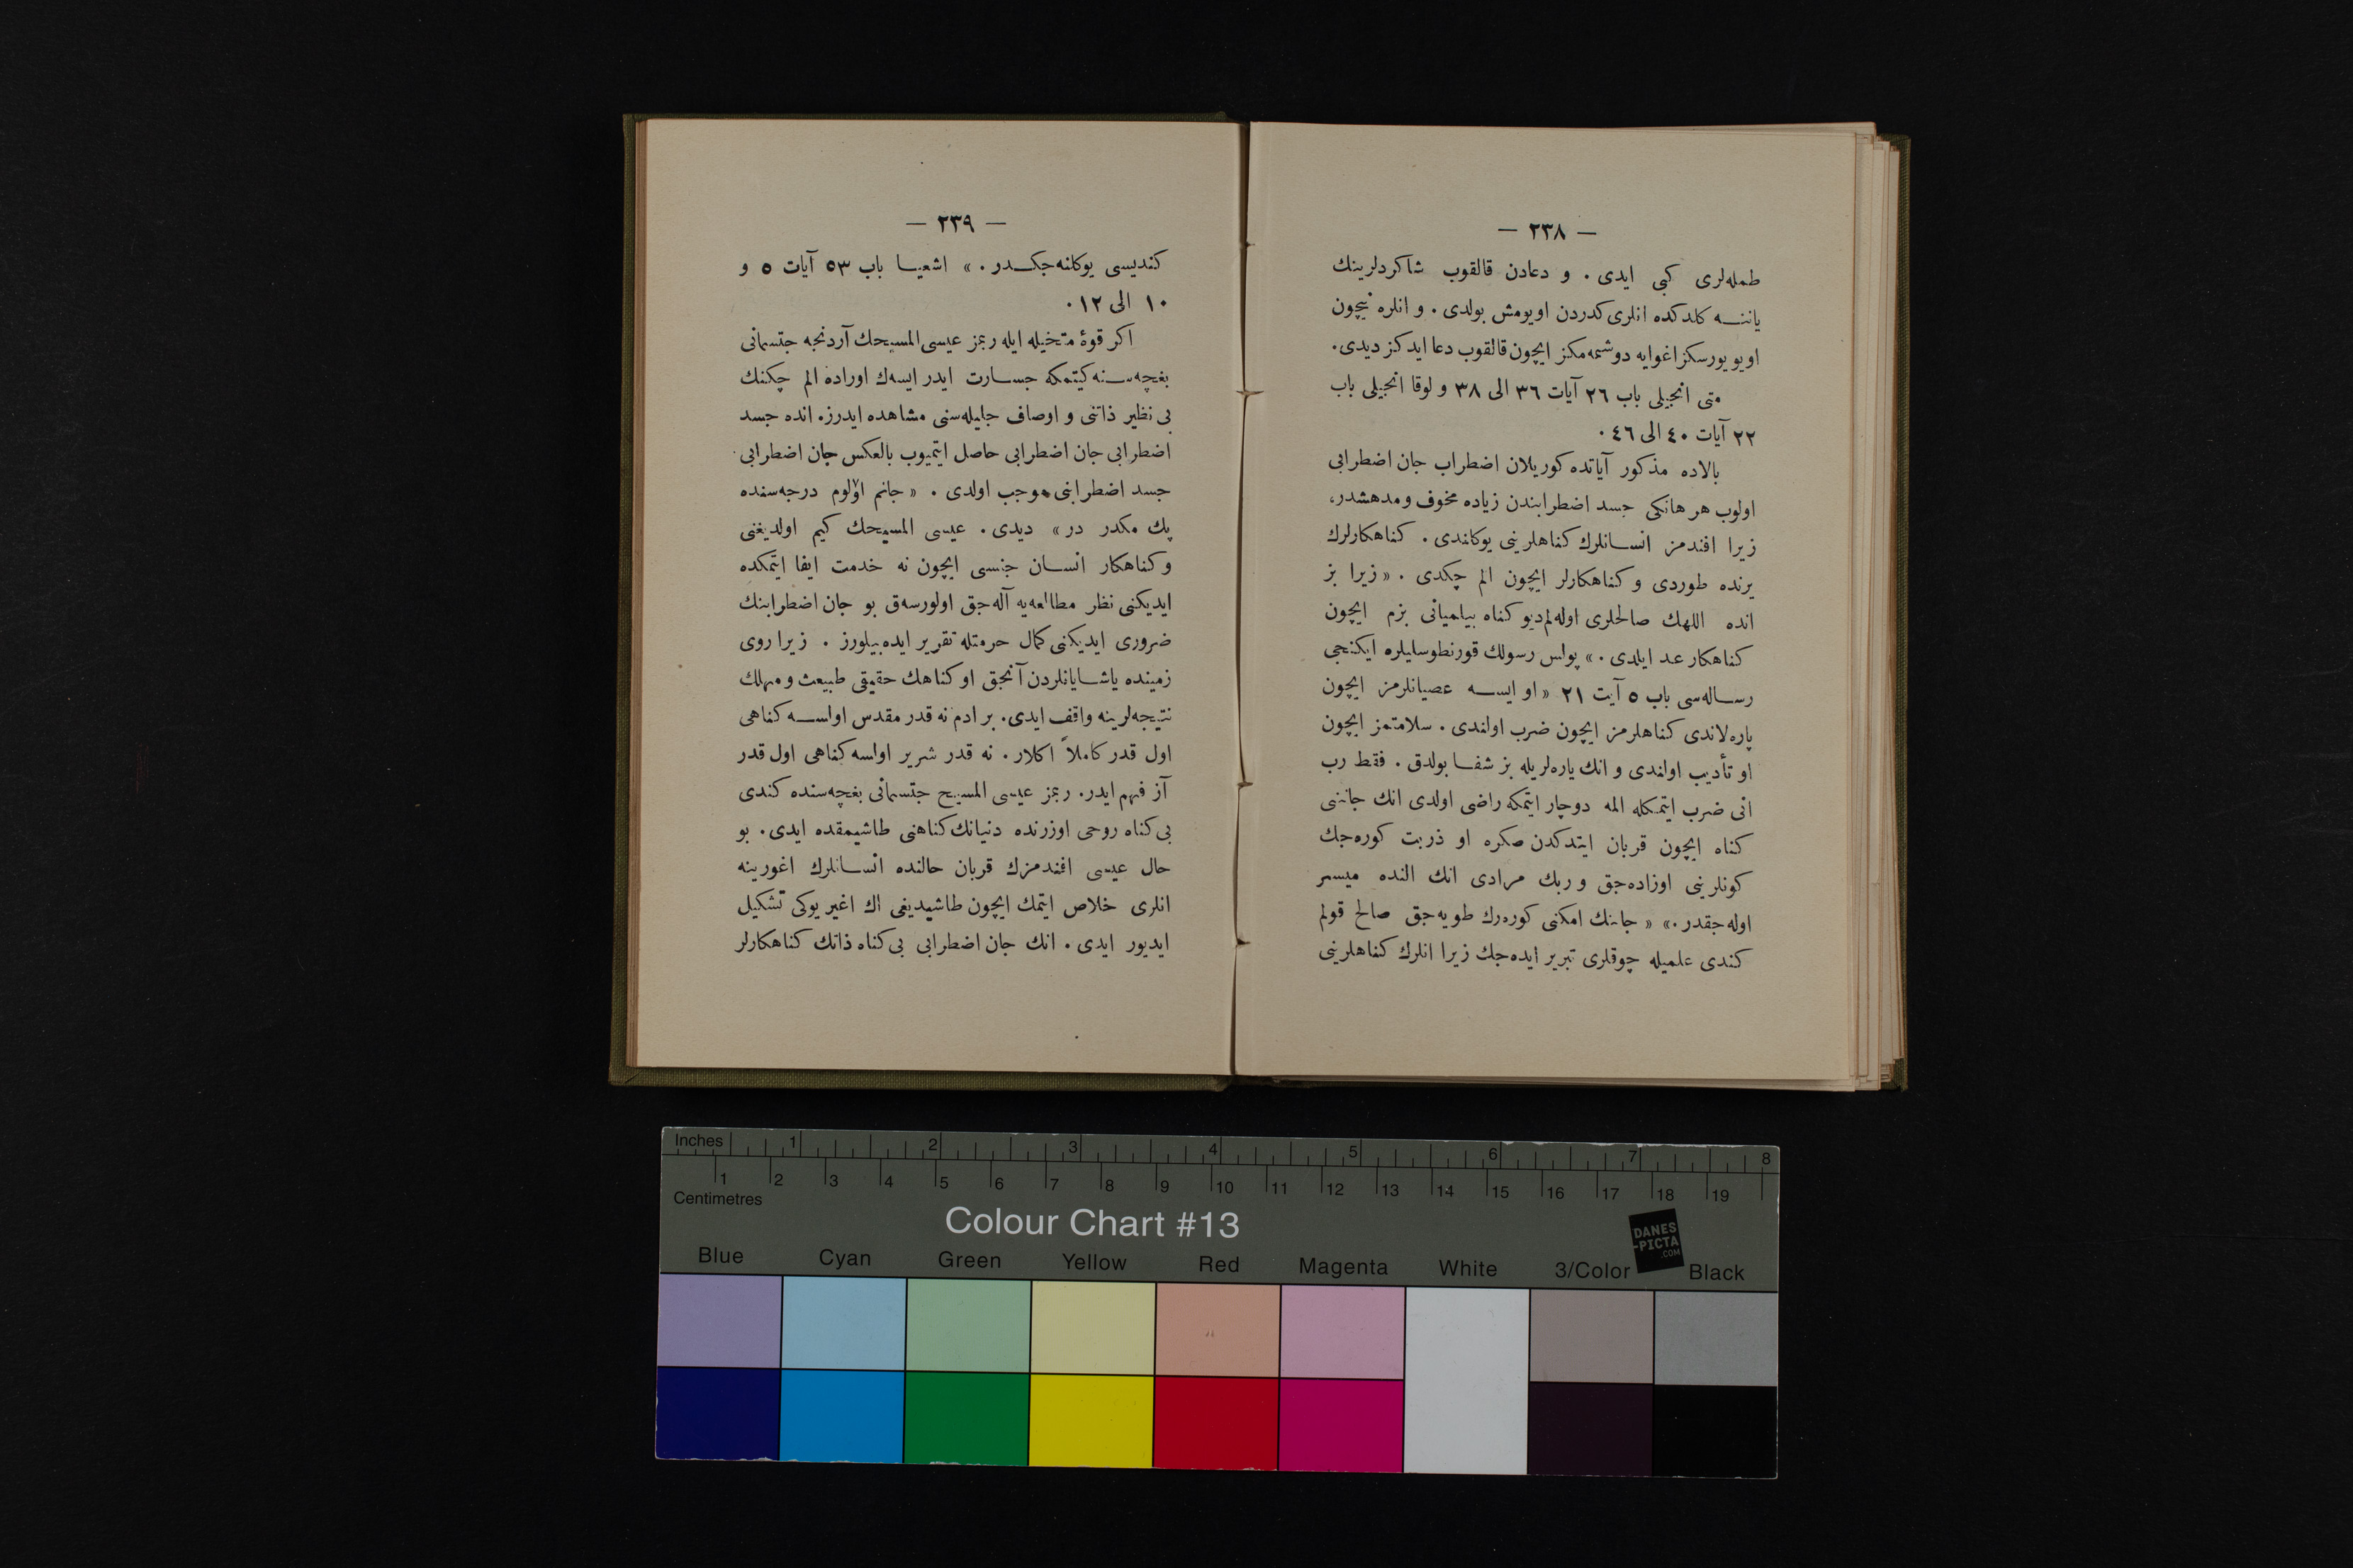 — ٢٣٨ —
طمله‌لرى كبى ايدى . و دعادن قالقوب شاكردلرينك
ياننـــه كلدكده انلرى كدردن اويومش بولدى . و انلره نيچون
اويو يورسكز اغوايه دوشمه‌مكز ايچون قالقوب دعا ايدكز ديدى .
متى انجيلى باب ٢٦ آيات ٣٦ الى ٣٨ و لوقا انجيلى باب
٢٢ آيات ٤٠ الى ٤٦ .
بالاده مذكور آياتده كوريلان اضطراب جان اضطرابى
اولوب هر هانكى جسد اضطرابندن زياده مخوف و مدهشدر ،
زيرا افندمز انســانلرك كناهلرينى يوكلندى . كناهكارلرك
يرنده طوردى و كناهكارلر ايچون الم چكدى . « زيرا بز
انده اللهك صالحلرى اوله‌لم ديو كناه بيلميانى بزم ايچون
كناهكار عد ايلدى . » پولس رسولك قورنطوسليلره ايكنجى
رســاله‌سى باب ٥ آيت ٢١ « او ايســه عصيانلرمز ايچون
پاره‌لاندى كناهلرمز ايچون ضرب اولندى . سلامتمز ايچون
او تأديب اولندى و انك ياره‌لريله بز شفــا بولدق . فقط رب
انى ضرب ايتمكله المه دوچار ايتمكه راضى اولدى انك جاننى
كناه ايچون قربان ايتدكدن صكره او ذريت كوره‌جك
كونلرينى اوزاده‌جق و ربك مرادى انك النده ميسر
اوله‌جقدر . » « جاننك امكنى كوره‌رك طويه‌جق صالح قولم
كندى علميله چوقلرى تبرير ايده‌جك زيرا انلرك كناهلرينى
— ٢٣٩ —
كنديسى يوكلنه‌جكــدر . » اشعيــا باب ٥٣ آيات ٥ و
١٠ الى ١٢ .
اكر قوۀ متخيله ايله ربمز عيسى المسيحك آردنجه جتسمانى
بغچه‌ســنه كيتمكه جســارت ايدر ايسه‌ك اوراده الم چكنك
بى نظير ذاتنى و اوصاف جليله‌سنى مشاهده ايدرز . انده جسد
اضطرابى جان اضطرابى حاصل ايتميوب بالعكس جان اضطرابى
جسد اضطرابنى موجب اولدى . « جانم اولوم درجه‌سنده
پك مكدر در » ديدى . عيسى المسيحك كيم اولديغنى
و كناهكار انســان جنسى ايچون نه خدمت ايفا ايتمكده
ايديكنى نظر مطالعه‌يه آله‌جق اولورسه‌ق بو جان اضطرابنك
ضرورى ايديكنى كمال حرمتله تقرير ايده‌بيلورز . زيرا روى
زمينده ياشــايانلردن آنجق او كناهك حقيقى طبيعت و مهلك
نتيجه‌لرينه واقف ايدى . بر ادم نه قدر مقدس اولســه كناهى
اول قدر كاملاً اكلار . نه قدر شرير اولسه كناهى اول قدر
آز فهم ايدر . ربمز عيسى المسيح جتسمانى بغچه‌سنده كندى
بى كناه روحى اوزرنده دنيانك كناهنى طاشيمقده ايدى . بو
حال عيسى افندمزك قربان حالنده انســانلرك اغورينه
انلرى خلاص ايتمك ايچون طاشيديغى اك اغير يوكى تشكيل
ايديور ايدى . انك جان اضطرابى بى كناه ذاتك كناهكارلر
Inches 1 2 3 4 5 6 7 8
1 2 3 4 5 6 7 8 9 10 11 12 13 14 15 16 17 18 19
Centimetres
Colour Chart #13
DANES
-PICTA
.COM
Blue Cyan Green Yellow Red Magenta White 3/Color Black